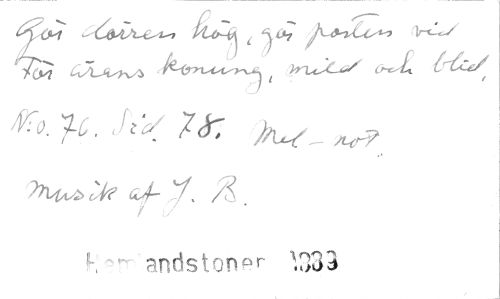 Gör dörren hög, gör porten vid
För ärans konung, mild och blid.
N:o. 70. Sid. 78. Mel-not.
Musik af J. B.
Hemlandstoner 1889